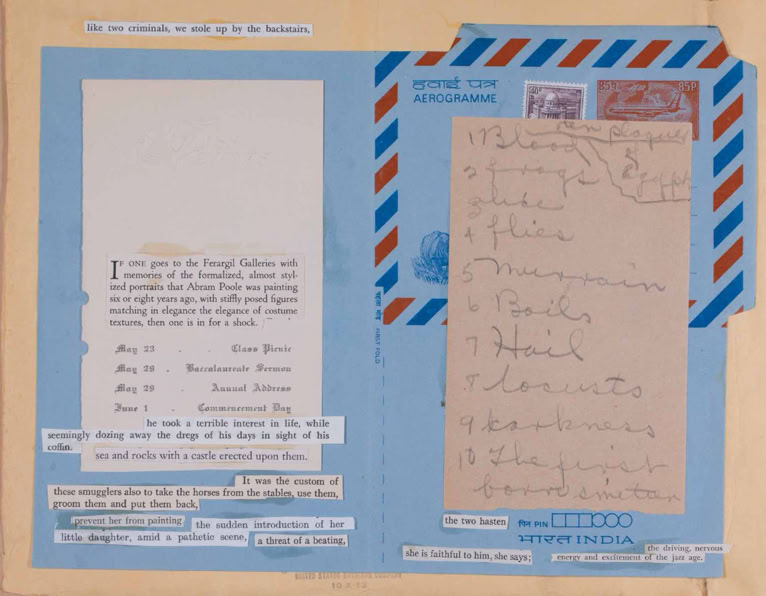 like two criminals, we stole up by the backstairs,
IF ONE goes to the Ferargil Galleries with
memories of the formalized, almost styl-
ized portraits that Abram Poole was painting
six or eight years ago, with stiffly posed figures
matching in elegance the elegance of costume
textures, then one is in for a shock.
May 23 . . Class Picnic
May 28 . Baccalaureate Sermon
May 29 . Annual Address
June 1 . Commencement Day
he took a terrible interest in life, while
seemingly dozing away the dregs of his days in sight of his
coffin.
sea and rocks with a castle erected upon them.
It was the custom of
these smugglers also to take the horses from the stables, use them,
groom them and put them back,
prevent her from painting
the sudden introduction of her
little daughter, amid a pathetic scene,
a threat of a beating,
हवाई पत्र
AEROGRAMME
85P 85P
ten plagues
of
Egypt
1 Blood
2 frogs
3 lice
4 flies
5 Murrain
6 Boils
7 Hail
8 locusts
9 darkness
10 The first
born smitten
FIRST FOLD
the two hasten
पिन PIN
भारत INDIA
she is faithful to him, she says;
the driving, nervous
energy and excitement of the jazz age.